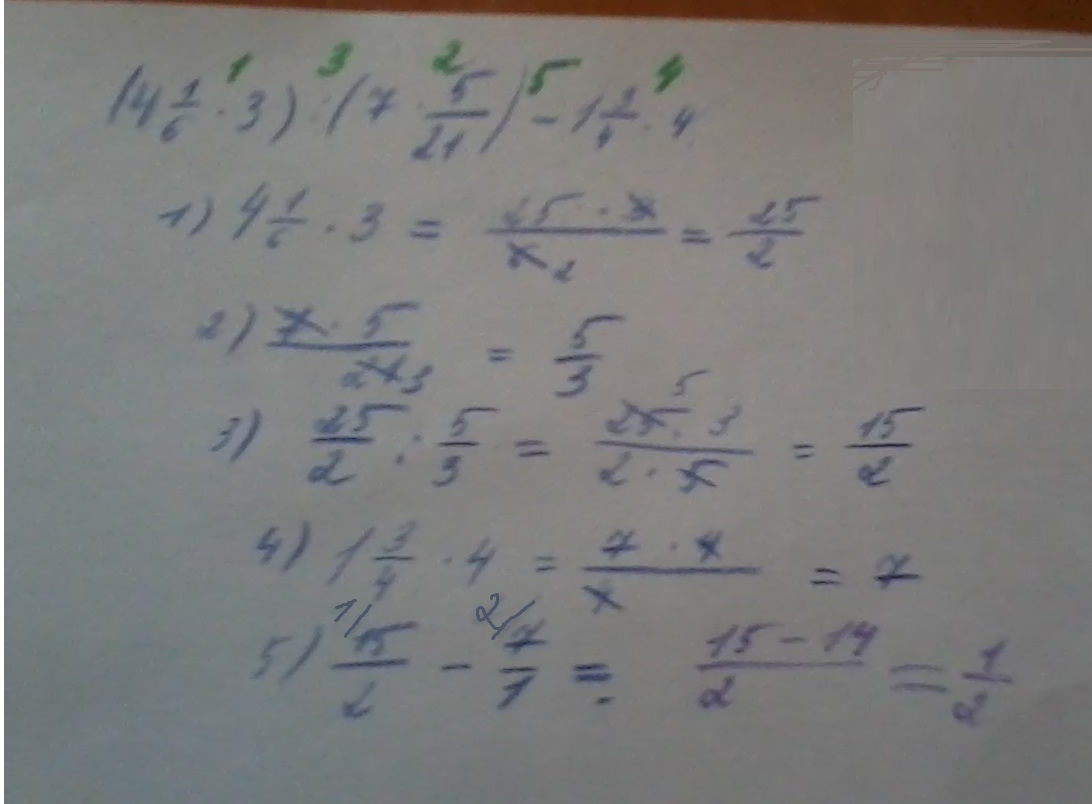 (4 1/6 · 3) : (7 · 5/21) − 1 3/4 · 4
1 3 2 5 4
1) 4 1/6 · 3 = 25 · 3/6 2 = 25/2
2) 7 · 5/21 3 = 5/3
3) 25/2 : 5/3 = 25 5 · 3/2 · 5 = 15/2
4) 1 3/4 · 4 = 7 · 4/4 = 7
5) 1/ 15/2 − 2/ 7/1 = 15 − 14/2 = 1/2